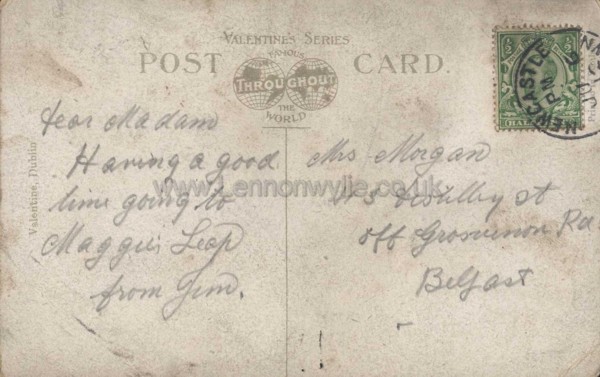 VALENTINE'S SERIES
FAMOUS
POST CARD.
THROUGHOUT
THE
WORLD
NEWCASTLE
PM
Valentine, Dublin
Dear Madam
Having a good
time going to
Maggies Leap
from Jim.
Mrs Morgan
43 Distillery St
off Grosvenor Rd
Belfast
www.Lennonwylie.co.uk